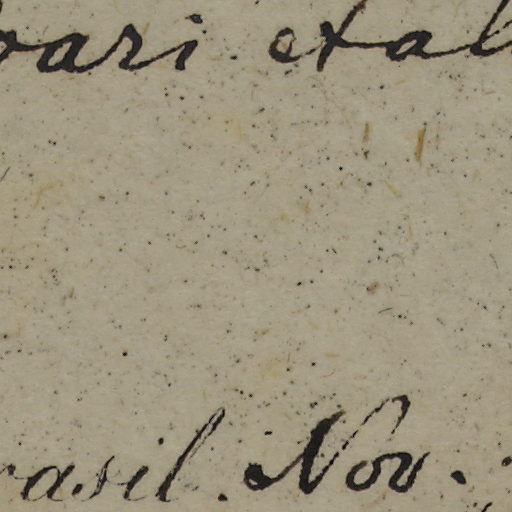 et al
rasil. Nov.